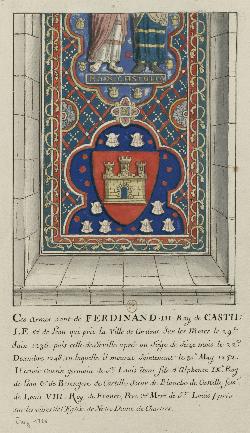 Ces Armes sont de FERDINAND III Roy de CASTIL
LE et de Leon qui prit la Ville de Cordoue sur les Mores le 29e
Juin 1236. puis celle de Seville après un siége de seize mois le 22e
Decembre 1248. en laquelle il mourut saintement le 30e May 1252.
Il étoit Cousin germain de St Louis étant fils d'Alphonse IX Roy
de Leon & de Berengere de Castille Sœur de Blanche de Castille fem
de Louis VIII. Roy de France, Pere et Mere de St Louis / pris
sur les vitres de l'Eglise de Notre Dame de Chartres.